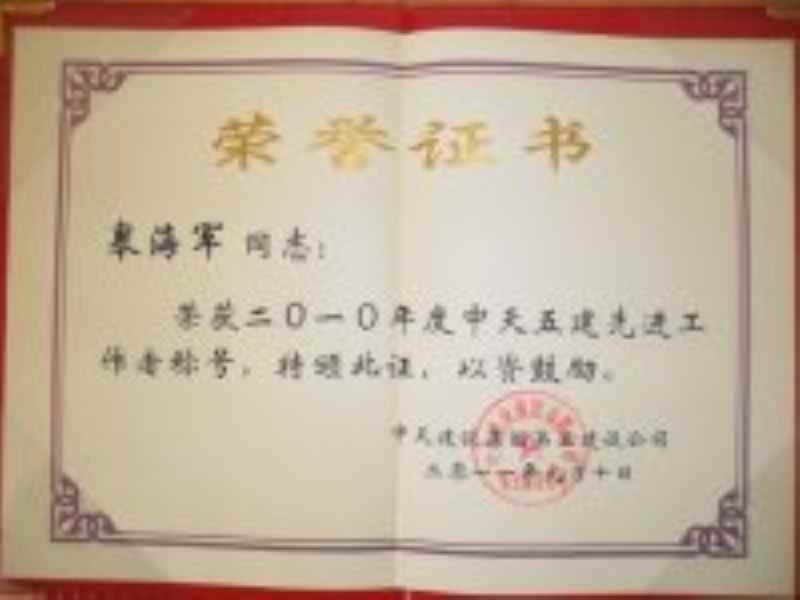 荣誉证书
海军 同志：
荣获二〇一〇年度中天五建先进工
作者称号，特颁此证，以资鼓励。
中天建设集团第五建设公司
二零一一年 月十日